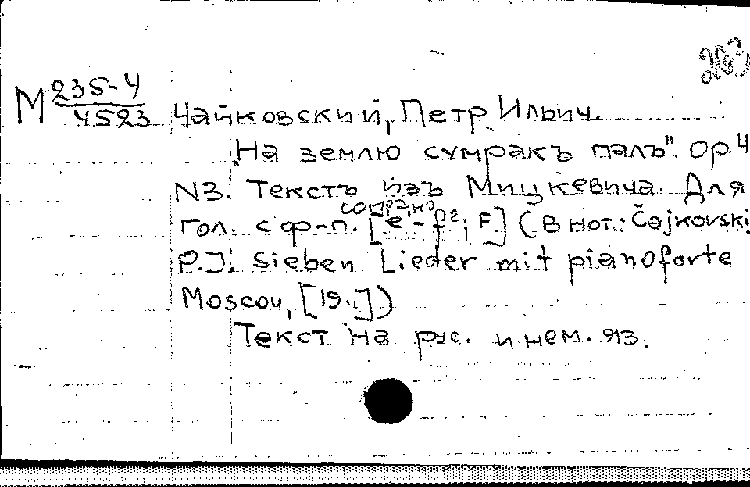 263
М 235-4
4523
Чайковский, Петр Ильич.
„На землю сумракъ палъ". Op 4
N3. Текстъ изъ Мицкевича. Для
сопрано
гол. с ф-п. [e¹-f²; F.] (В нот.: Čajkovskij
P.J. Sieben Lieder mit pianoforte
Moscou, [19..])
Текст на рус. и нем. яз.